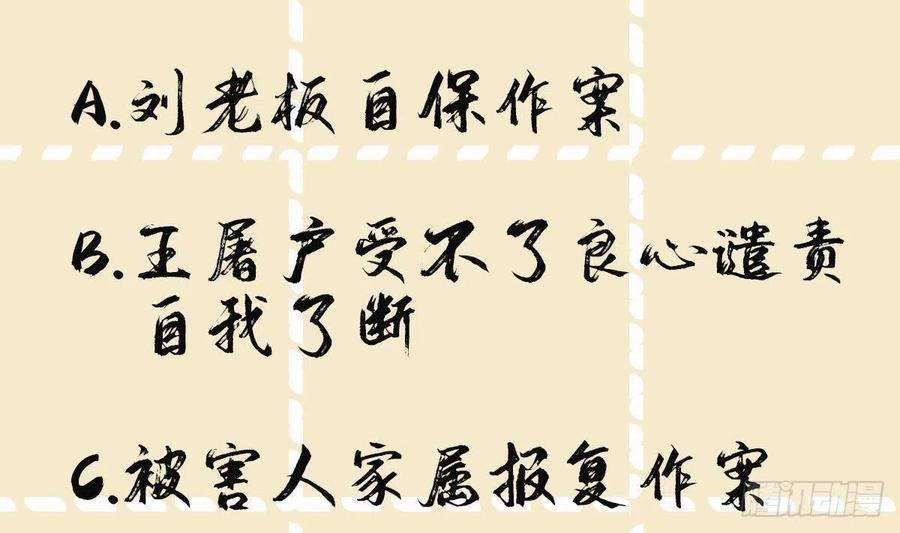 A.刘老板自保作案
B.王屠户受不了良心谴责
自我了断
C.被害人家属报复作案
腾讯动漫